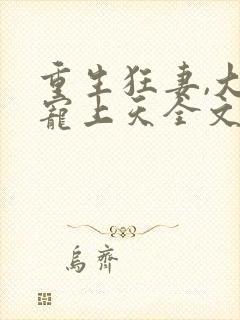 重生狂妻,大
寵上天全文
烏齊